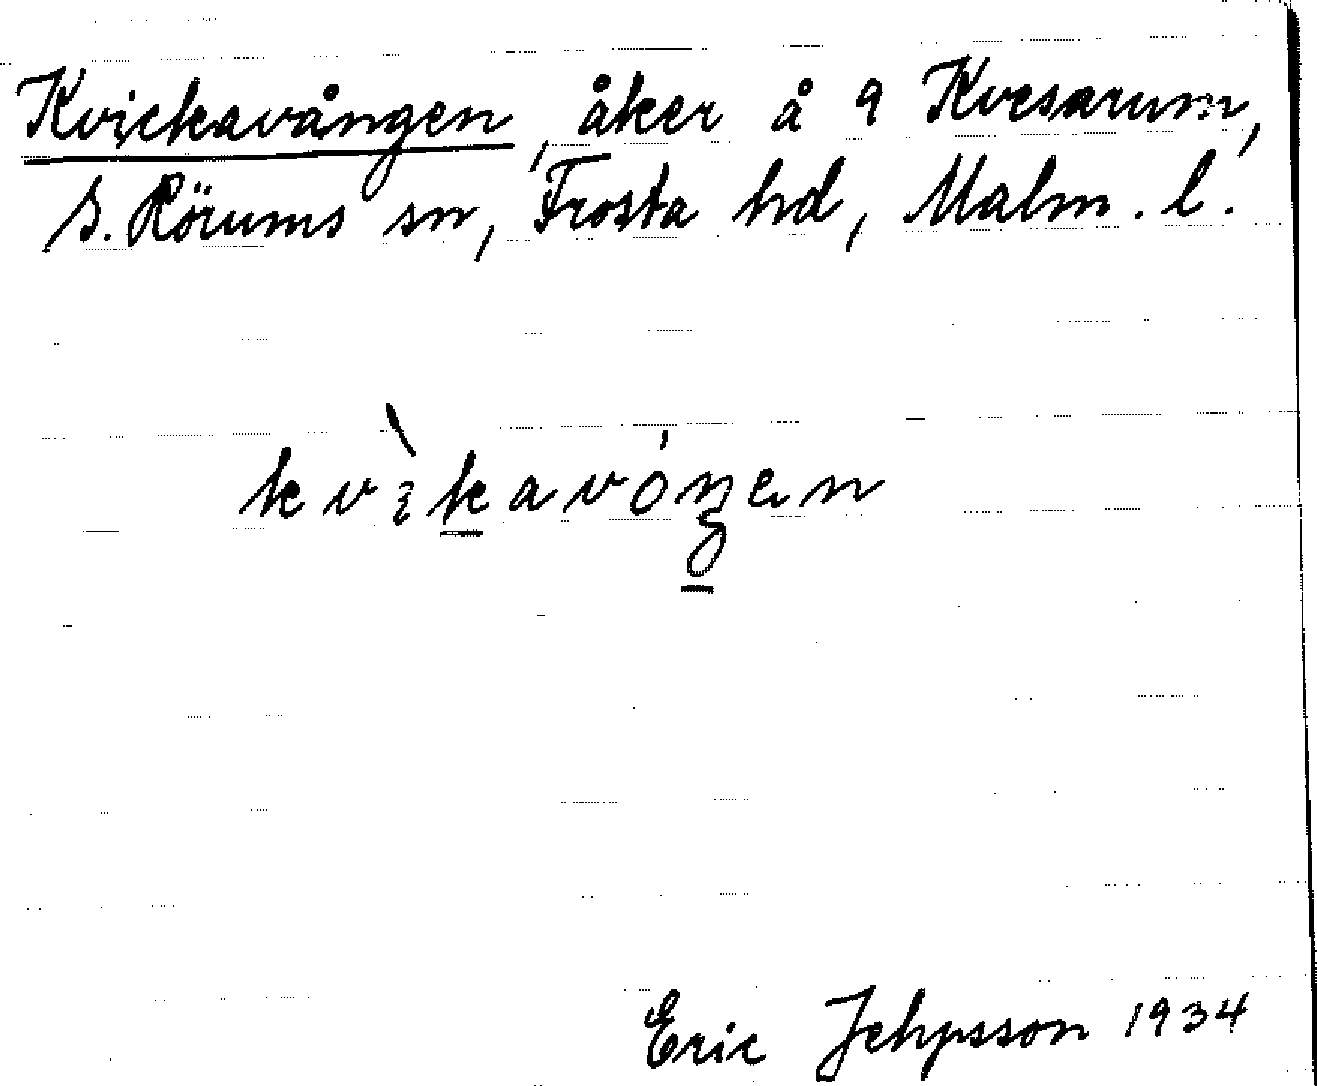 Kvickavången, åker å 9 Kvesarum,
S. Rörums sn, Frosta hd, Malm. l.
kvìkavóŋen
Eric Jehpsson 1934